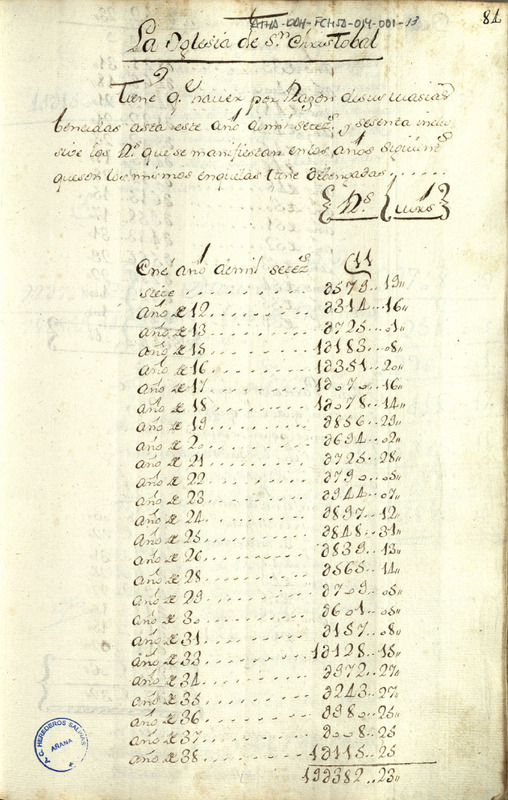 ATHA-DAH-FCHSD-014-001-13
84
La Yglesia de Sn. Christobal
Tiene qe. haver por Razon desus
bencidas asta este año demil setezs. y sesenta
sive los Rs. que se manifiestan enlos años siguientes
queson los mismos enquelas tiene debengadas . . . . .
Rs mrs
Enel año demil setezs
siete . . . . . . . . . . . . d579..19"
año de 12 . . . . . . . d314..16"
año de 13 . . . . . . . d725..01"
año de 15 . . . . . . . 1d183..08"
año de 16 . . . . . . . 1d351..20"
año de 17 . . . . . . . 1d070..16"
año de 18 . . . . . . . 1d078..14"
año de 19 . . . . . . . d856..29"
año de 20 . . . . . . . d694..02"
año de 21 . . . . . . . d725..28"
año de 22 . . . . . . . d790..05"
año de 23 . . . . . . . d944..07"
año de 24 . . . . . . . d897..12"
año de 25 . . . . . . . d848..31"
año de 26 . . . . . . . d839..13"
año de 28 . . . . . . . d565..14"
año de 29 . . . . . . . d709..05"
año de 30 . . . . . . . d601..05"
año de 31 . . . . . . . d157..08"
año de 33 . . . . . . . 1d128..18"
año de 34 . . . . . . . d972..27"
año de 35 . . . . . . . d243..27
año de 36 . . . . . . . d980..25"
año de 37 . . . . . . . d008..25
año de 38 . . . . . . . 1d115..25
19d382..23"
A. C. HEREDEROS SALINAS
AÑANA